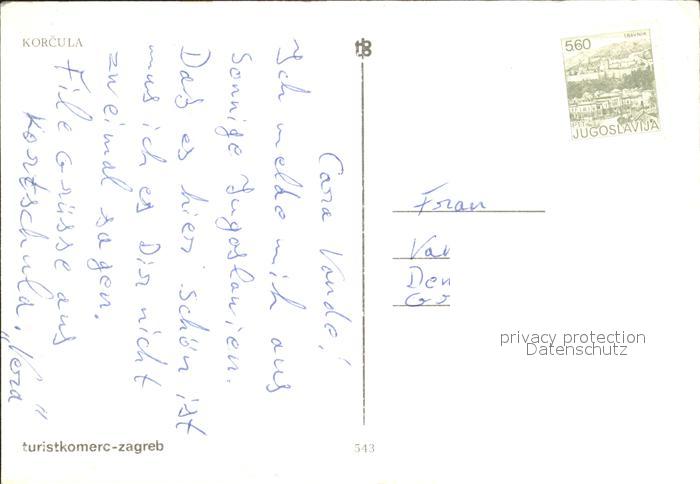 KORČULA
Cara Vanda!
Ich melde mich aus
sonnige Jugoslawien.
Das es hier schön ist
mus ich es Dir nicht
zweimal sagen.
File Grüsse aus
Kortschula. "Vera"
turistkomerc-zagreb
543
TRAVNIK
5,60
PTT
JUGOSLAVIJA
Fran
Van
Den
privacy protection
Datenschutz